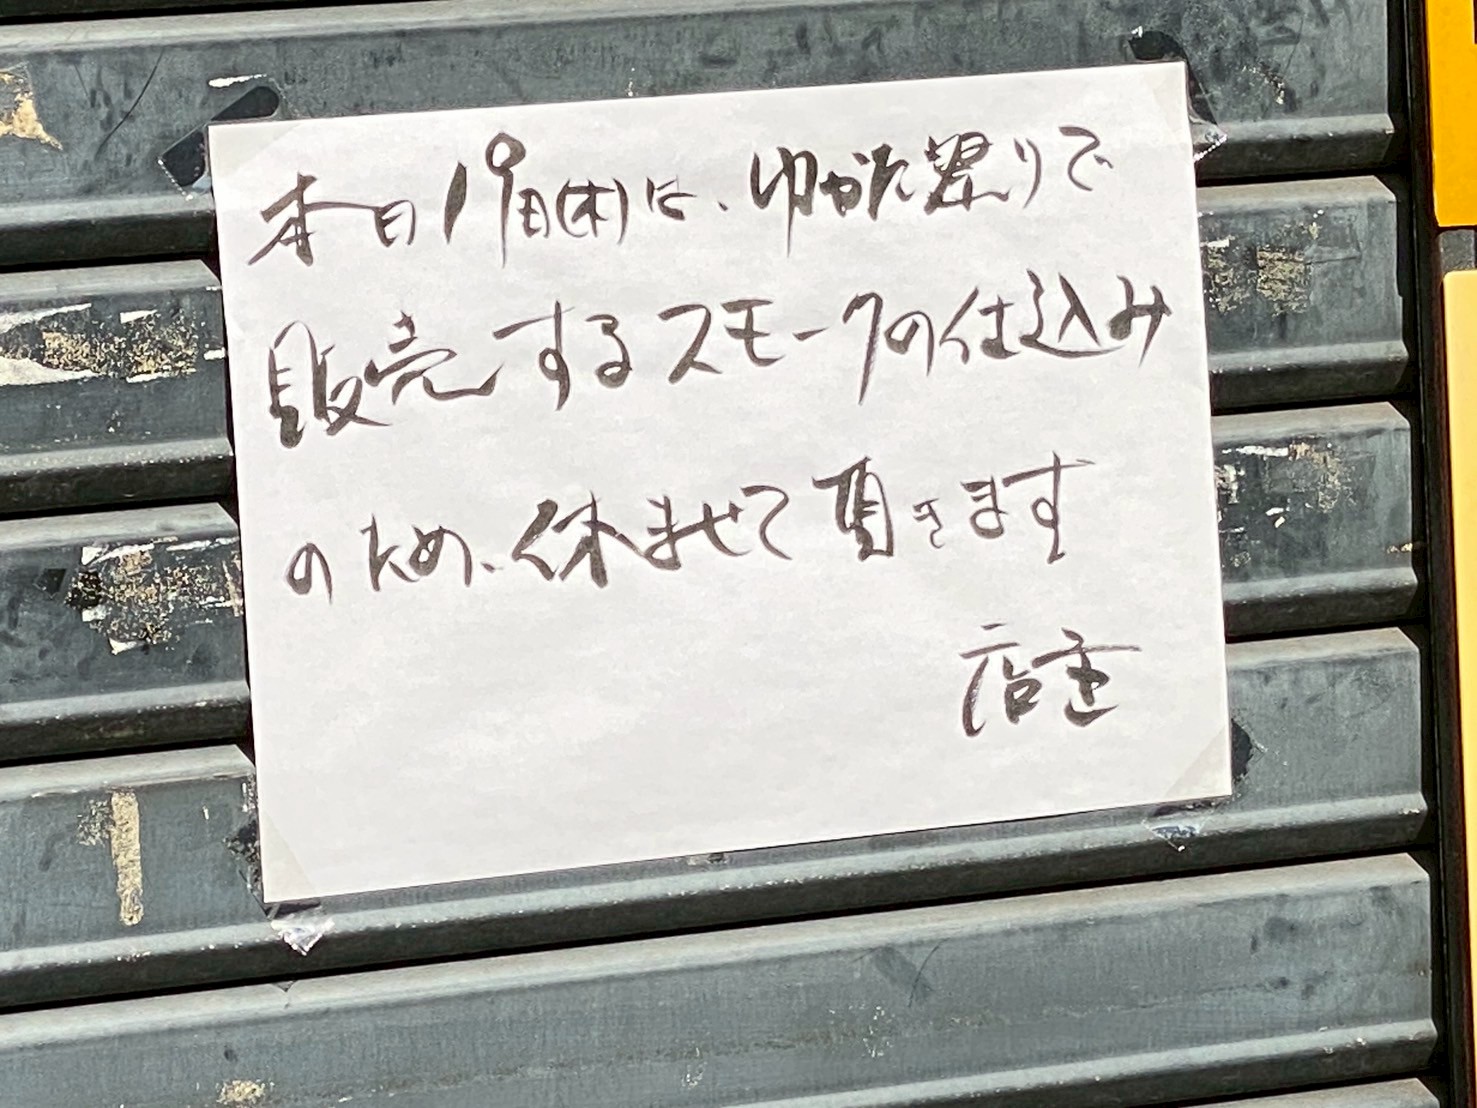 本日19日(木)は、ゆかた祭りで
販売するスモークの仕込み
のため、休ませて頂きます
店主